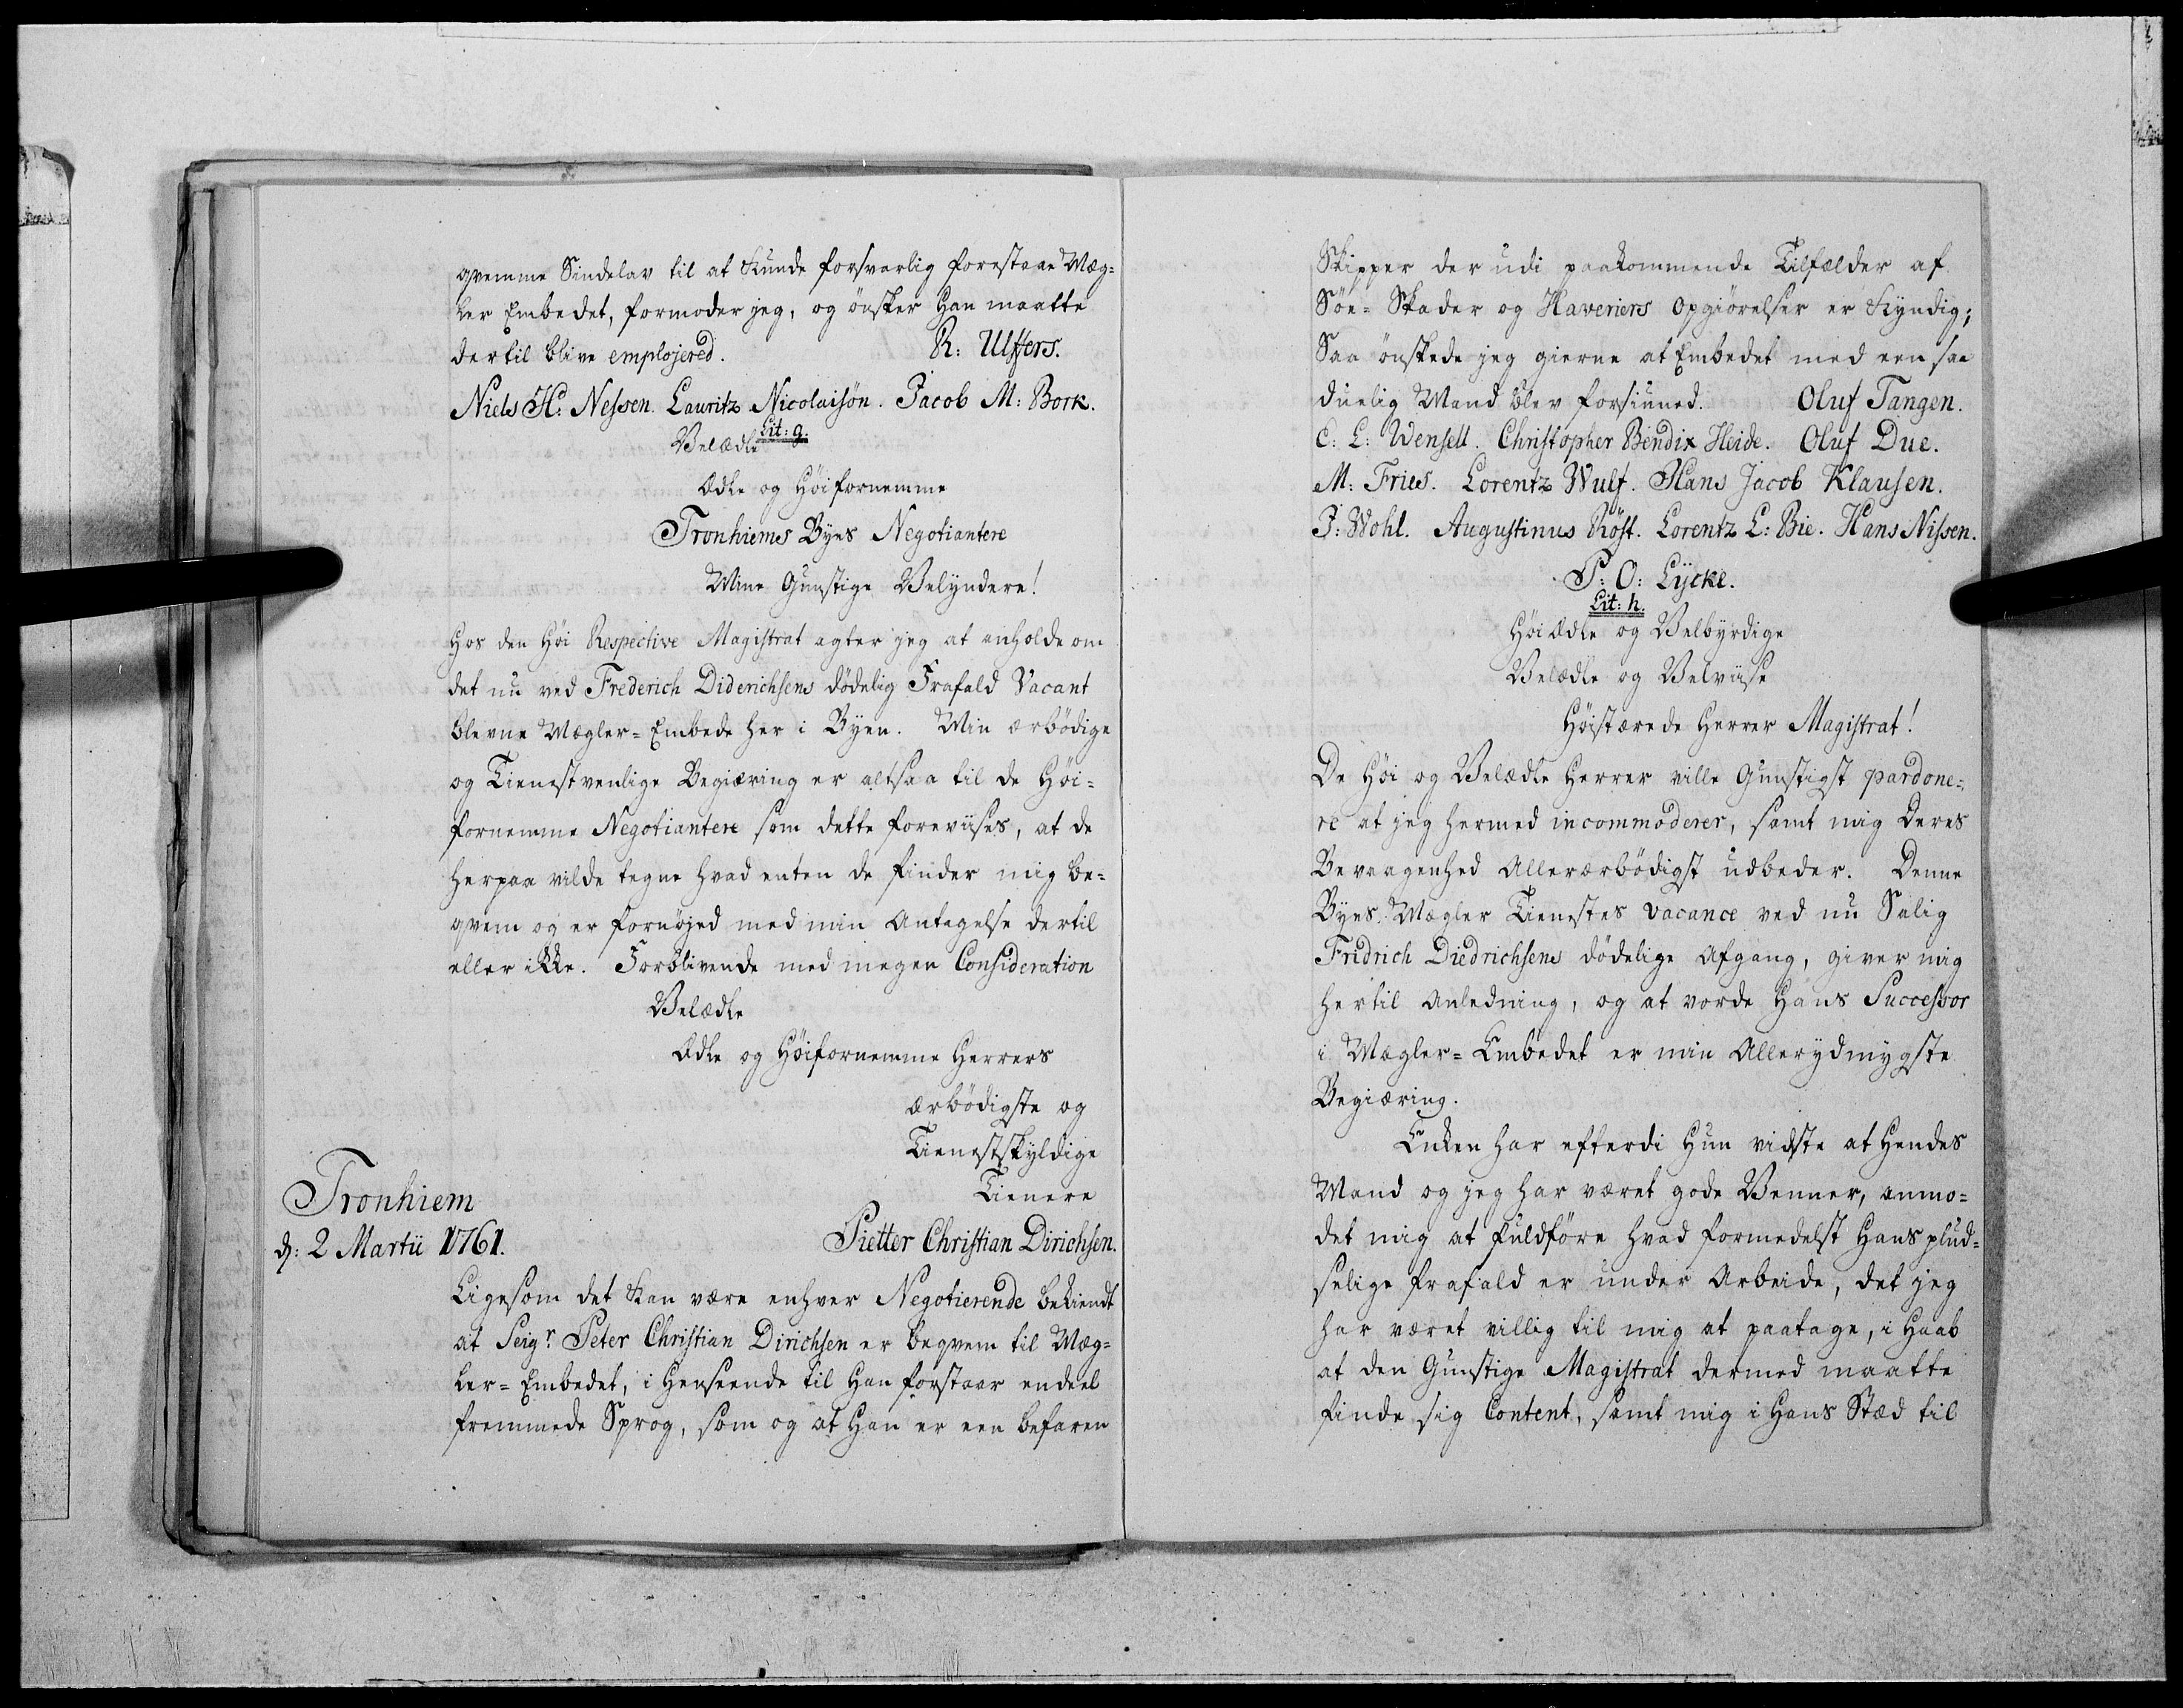 qvemme Sindelav til at Kunde forsvarlig forestaae Mæg=
ler Embedet, formoder jeg, og önsker Han maatte
dertil blive emplojered. R: Ulffers.
Niels H: Nessen. Lauritz Nicolaisön. Jacob M: Bork.
Lit: g.
Velædle
Ædle og Höifornemme
Tronhiems Byes Negotiantere
Mine Gunstige Velyndere!
Hos den Höi Respective Magistrat agter jeg at anholde om
det nu ved Frederich Diderichsens dödelig Frafald Vacant
blevne Mægler=Embede her i Byen. Min ærbödige
og Tienstvenlige Begiæring er altsaa til de Höi=
fornemme Negotiantere som dette foreviises, at de
herpaa vilde tegne hvad enten de finder mig be=
qvem og er fornöjed med min Antagelse dertil
eller ikke. Forblivende med megen Consideration
Velædle
Ædle og Höifornemme Herrers
ærbödigste og
Tienstskyldige
Tienere
Tronhiem
d: 2 Martii 1761. Pietter Christian Dirichsen.
Ligesom det Kan være enhver Negotierende bekiendt
at Seigr. Peter Christian Dirichsen er beqvem til Mæg=
ler=Embedet, i Henseende til Han forstaar endeel
fremmede Sprog, som og at Han er een befaren
Skipper der udi paakommende Tilfælder af
Söe=Skader og Haveriers Opgiörelser er Kyndig;
Saa önskede jeg gierne at Embedet med een saa
duelig Mand blev forsiuned. Oluf Tangen.
C: L: Wensell. Christopher Bendix Heide. Oluf Due.
M: Fries. Lorentz Wulf. Hans Jacob Klausen.
J: Wohl. Augustinus Röst. Lorentz L: Bie. Hans Nissen.
P: O: Lÿcke.
Lit: h.
Höiædle og Velbyrdige
Velædle og Velviise
Höistærede Herrer Magistrat!
De Höi og Velædle Herrer ville Gunstigst pardone=
re at jeg hermed incommoderer, samt mig Deres
Bevaagenhed Allerærbödigst udbeder. Denne
Byes Mægler Tienestes vacance ved nu Salig
Fridrich Diedrichsens dödelige Afgang, giver mig
hertil Anledning, og at vorde Hans Successor
i Mægler=Embedet er min Allerydmygste
Begiæring.
Enken har efterdi Hun vidste at Hendes
Mand og jeg har været gode Venner, anmo=
det mig at fuldföre hvad formedelst Hans plud=
selige frafald er under Arbeide, det jeg
har været villig til mig at paatage, i Haab
at den Gunstige Magistrat dermed maatte
finde sig Content, samt mig i Hans Stæd til